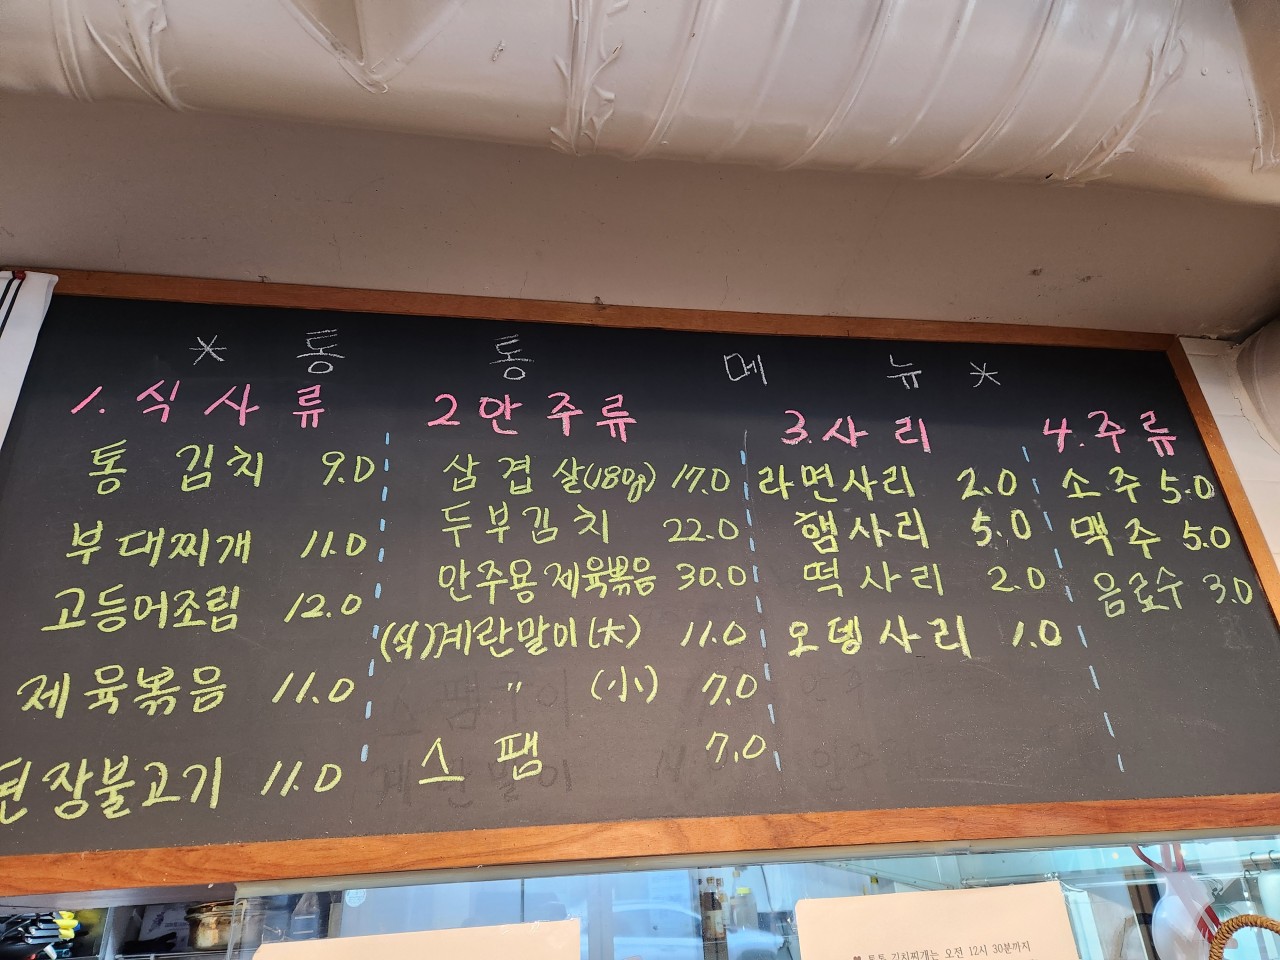 * 통 통 메 뉴 *
1. 식사류
통 김치 9.0
부대찌개 11.0
고등어조림 12.0
제육볶음 11.0
된장불고기 11.0
2 안주류
삼겹살(180g) 17.0
두부김치 22.0
안주용 제육볶음 30.0
(식)계란말이(大) 11.0
" (小) 7.0
스팸 7.0
3.사리
라면사리 2.0
햄사리 5.0
떡사리 2.0
오뎅사리 1.0
4.주류
소주 5.0
맥주 5.0
음료수 3.0
통통 김치찌개는 오전 12시 30분까지